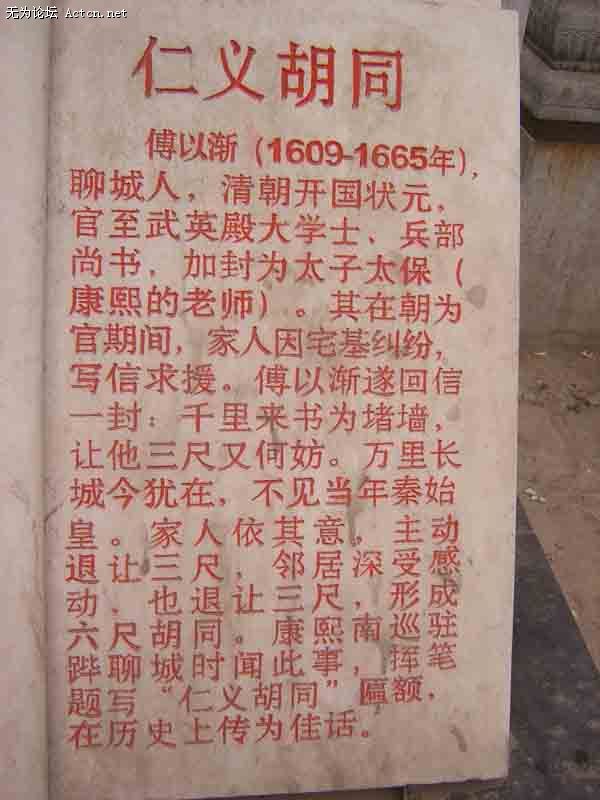 无为论坛 Actcn.net
仁义胡同
傅以渐（1609-1665年），
聊城人，清朝开国状元，
官至武英殿大学士、兵部
尚书，加封为太子太保（
康熙的老师）。其在朝为
官期间，家人因宅基纠纷，
写信求援。傅以渐遂回信
一封：千里来书为堵墙，
让他三尺又何妨。万里长
城今犹在，不见当年秦始
皇。家人依其意，主动
退让三尺，邻居深受感
动，也退让三尺，形成
六尺胡同。康熙南巡驻
跸聊城时闻此事，挥笔
题写“仁义胡同”匾额，
在历史上传为佳话。